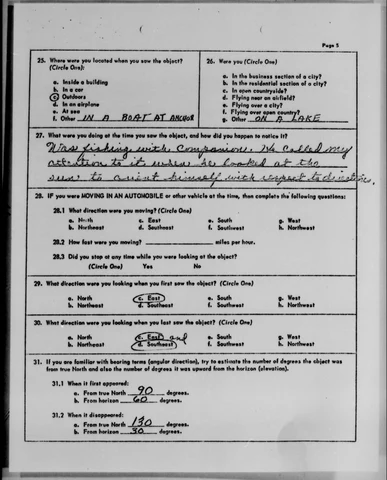 Page 5
25. Where were you located when you saw the object?
(Circle One):
a. Inside a building
b. In a car
c. Outdoors
d. In an airplane
e. At sea
f. Other IN A BOAT AT ANCHOR
26. Were you (Circle One)
a. In the business section of a city?
b. In the residential section of a city?
c. In open countryside?
d. Flying near an airfield?
e. Flying over a city?
f. Flying over open country?
g. Other ON A LAKE
27. What were you doing at the time you saw the object, and how did you happen to notice it?
Was fishing with companion. He called my
attention to it when he looked at the
sun to orient himself with respect to direction.
28. IF you were MOVING IN AN AUTOMOBILE or other vehicle at the time, then complete the following questions:
28.1 What direction were you moving? (Circle One)
a. North c. East e. South g. West
b. Northeast d. Southeast f. Southwest h. Northwest
28.2 How fast were you moving? miles per hour.
28.3 Did you stop at any time while you were looking at the object?
(Circle One) Yes No
29. What direction were you looking when you first saw the object? (Circle One)
a. North c. East e. South g. West
b. Northeast d. Southeast f. Southwest h. Northwest
30. What direction were you looking when you last saw the object? (Circle One)
a. North c. East and e. South g. West
b. Northeast d. Southeast f. Southwest h. Northwest
31. If you are familiar with bearing terms (angular direction), try to estimate the number of degrees the object was
from true North and also the number of degrees it was upward from the horizon (elevation).
31.1 When it first appeared:
a. From true North 90 degrees.
b. From horizon 60 degrees.
31.2 When it disappeared:
a. From true North 130 degrees.
b. From horizon 30 degrees.